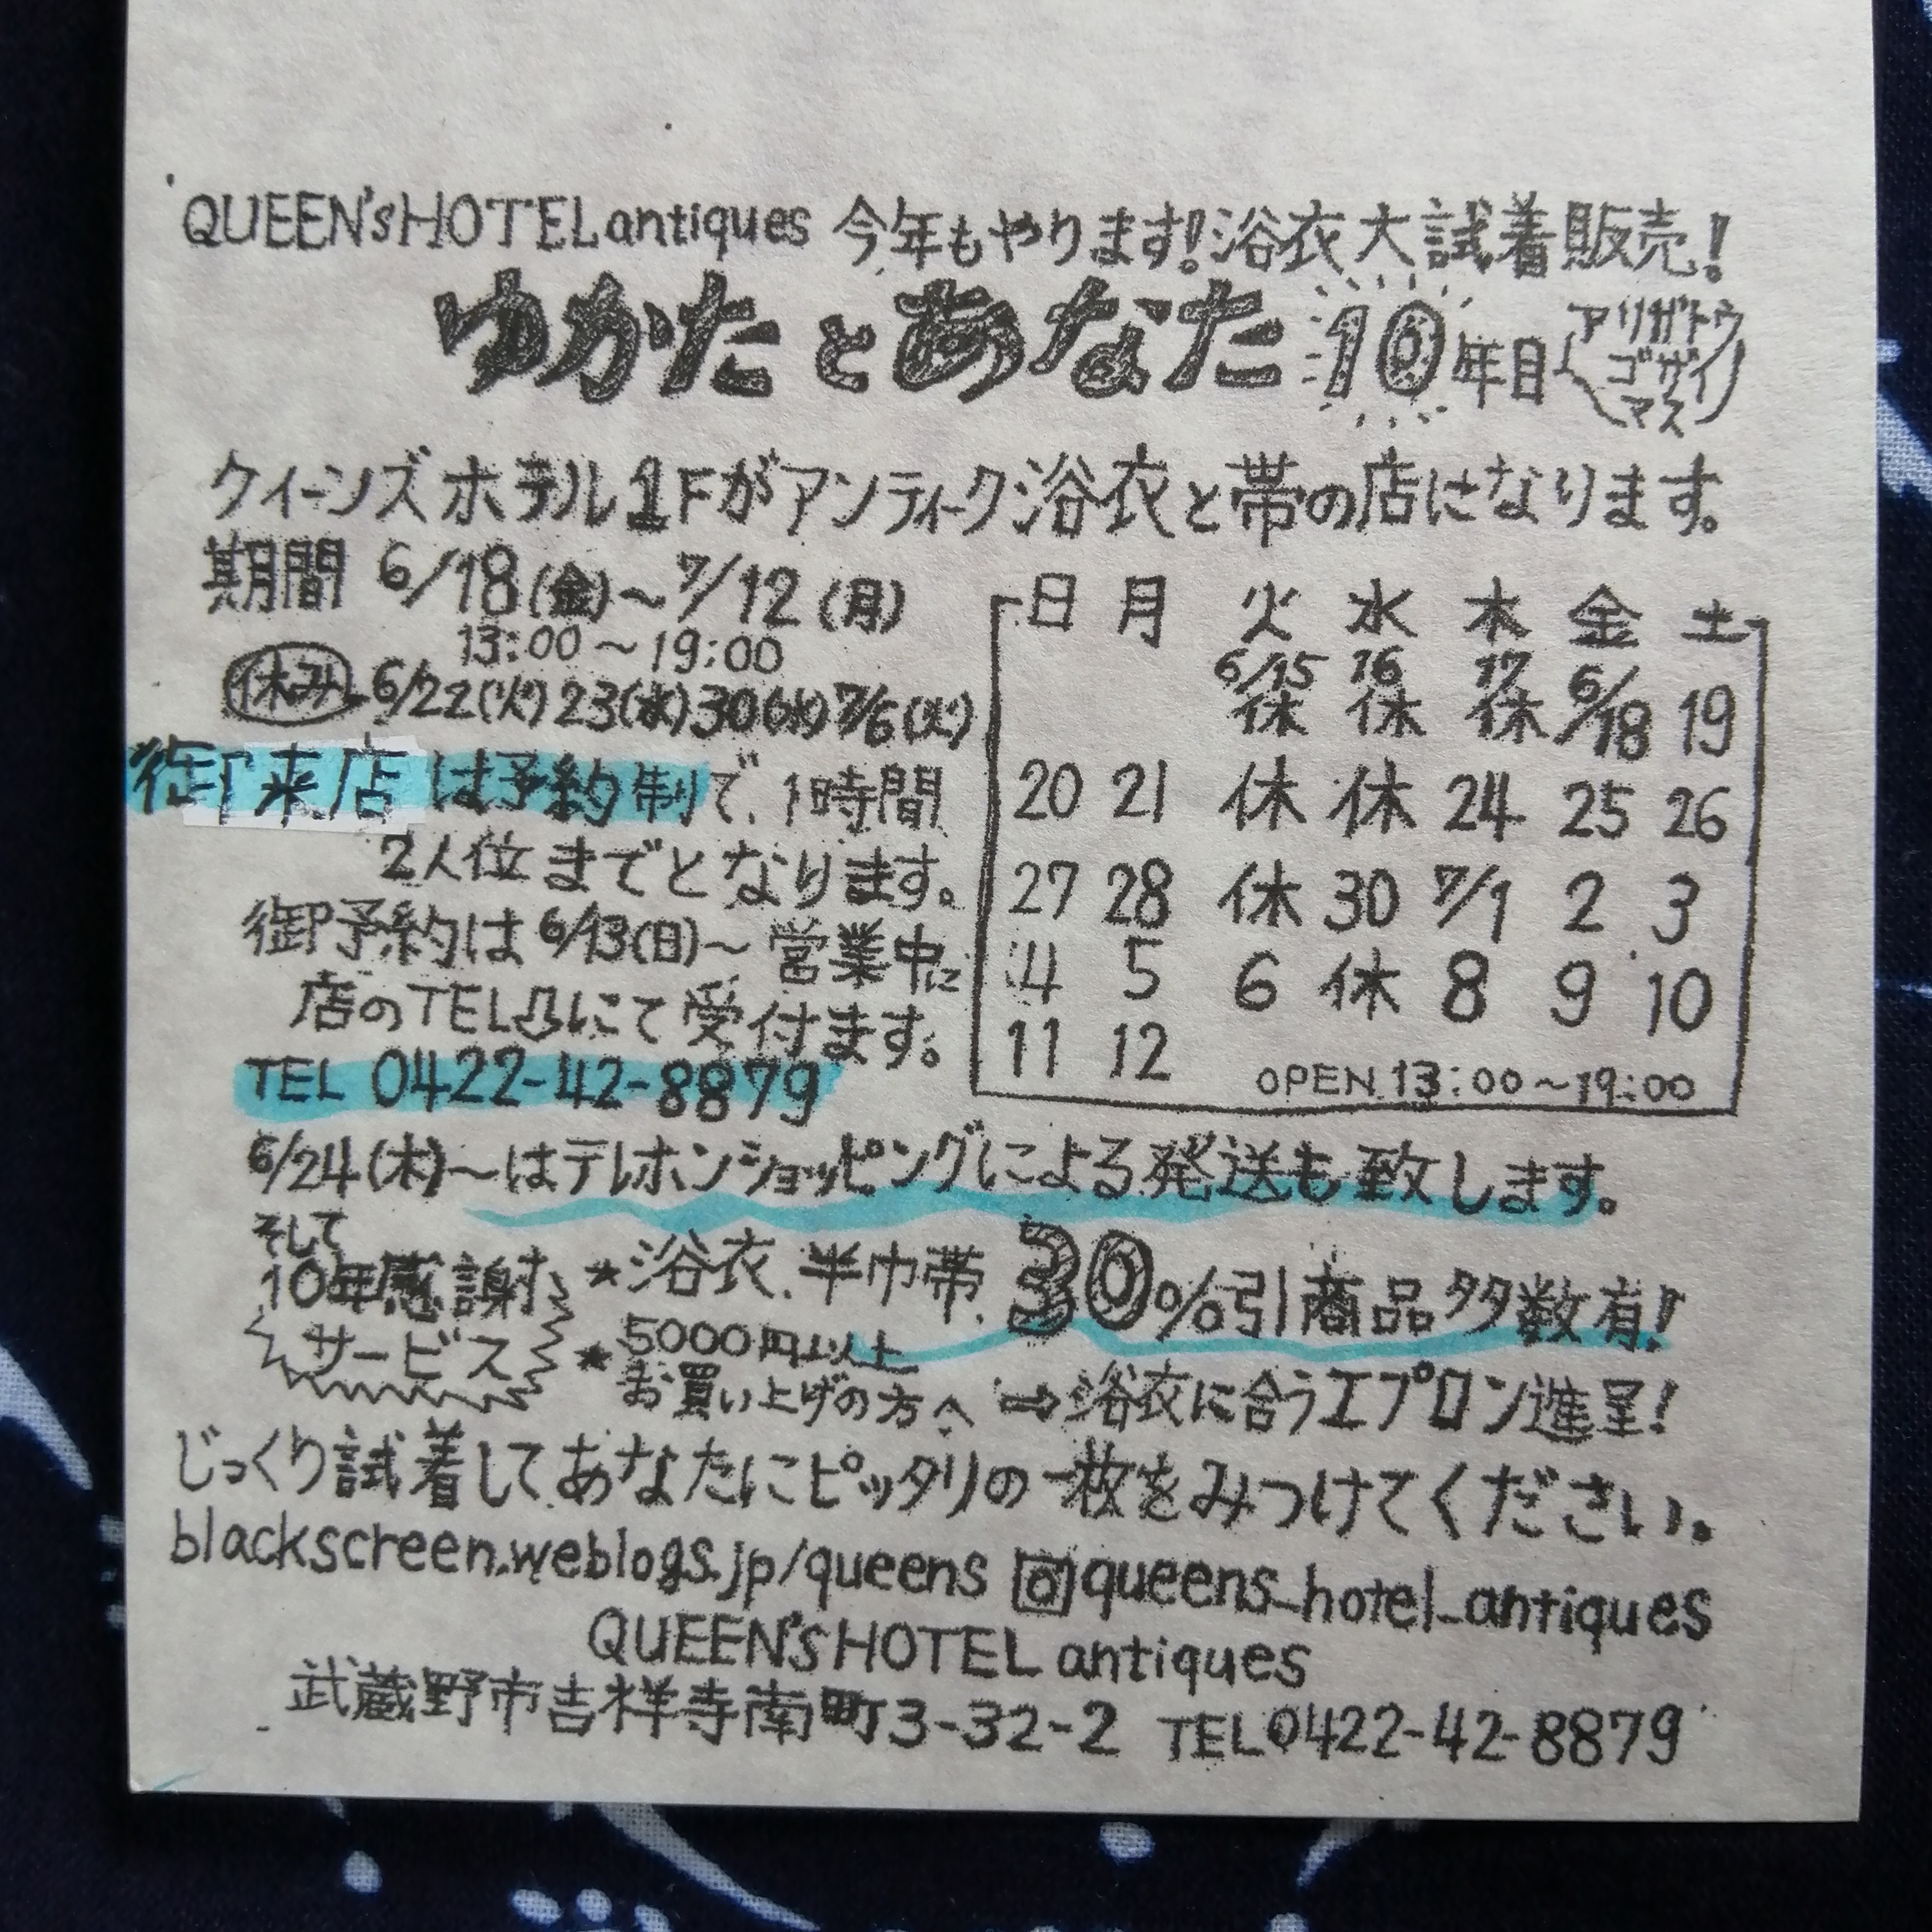 QUEEN'sHOTELantiques 今年もやります!浴衣大試着販売!
ゆかたとあなた10年目(アリガトウゴザイマス)
クィーンズホテル1Fがアンティーク浴衣と帯の店になります。
期間 6/18(金)~7/12(月)
13:00~19:00
休み 6/22(火)23(水)30(水)7/6(火)
御来店は予約制で、1時間
2人位までとなります。
御予約は6/13(日)~営業中に
店のTEL⇩にて受付ます。
TEL 0422-42-8879
日 月 火 水 木 金 土
6/15休 16休 17休 6/18 19
20 21 休 休 24 25 26
27 28 休 30 7/1 2 3
4 5 6 休 8 9 10
11 12 OPEN 13:00~19:00
6/24(木)~はテレホンショッピングによる発送も致します。
そして
10年感謝 ★浴衣、半巾帯、30%引商品多数有!
サービス ★5000円以上
お買い上げの方へ ⇒浴衣に合うエプロン進呈!
じっくり試着して、あなたにピッタリの一枚をみつけてください。
blackscreen.weblogs.jp/queens queens_hotel_antiques
QUEEN'SHOTEL antiques
武蔵野市吉祥寺南町3-32-2 TEL0422-42-8879